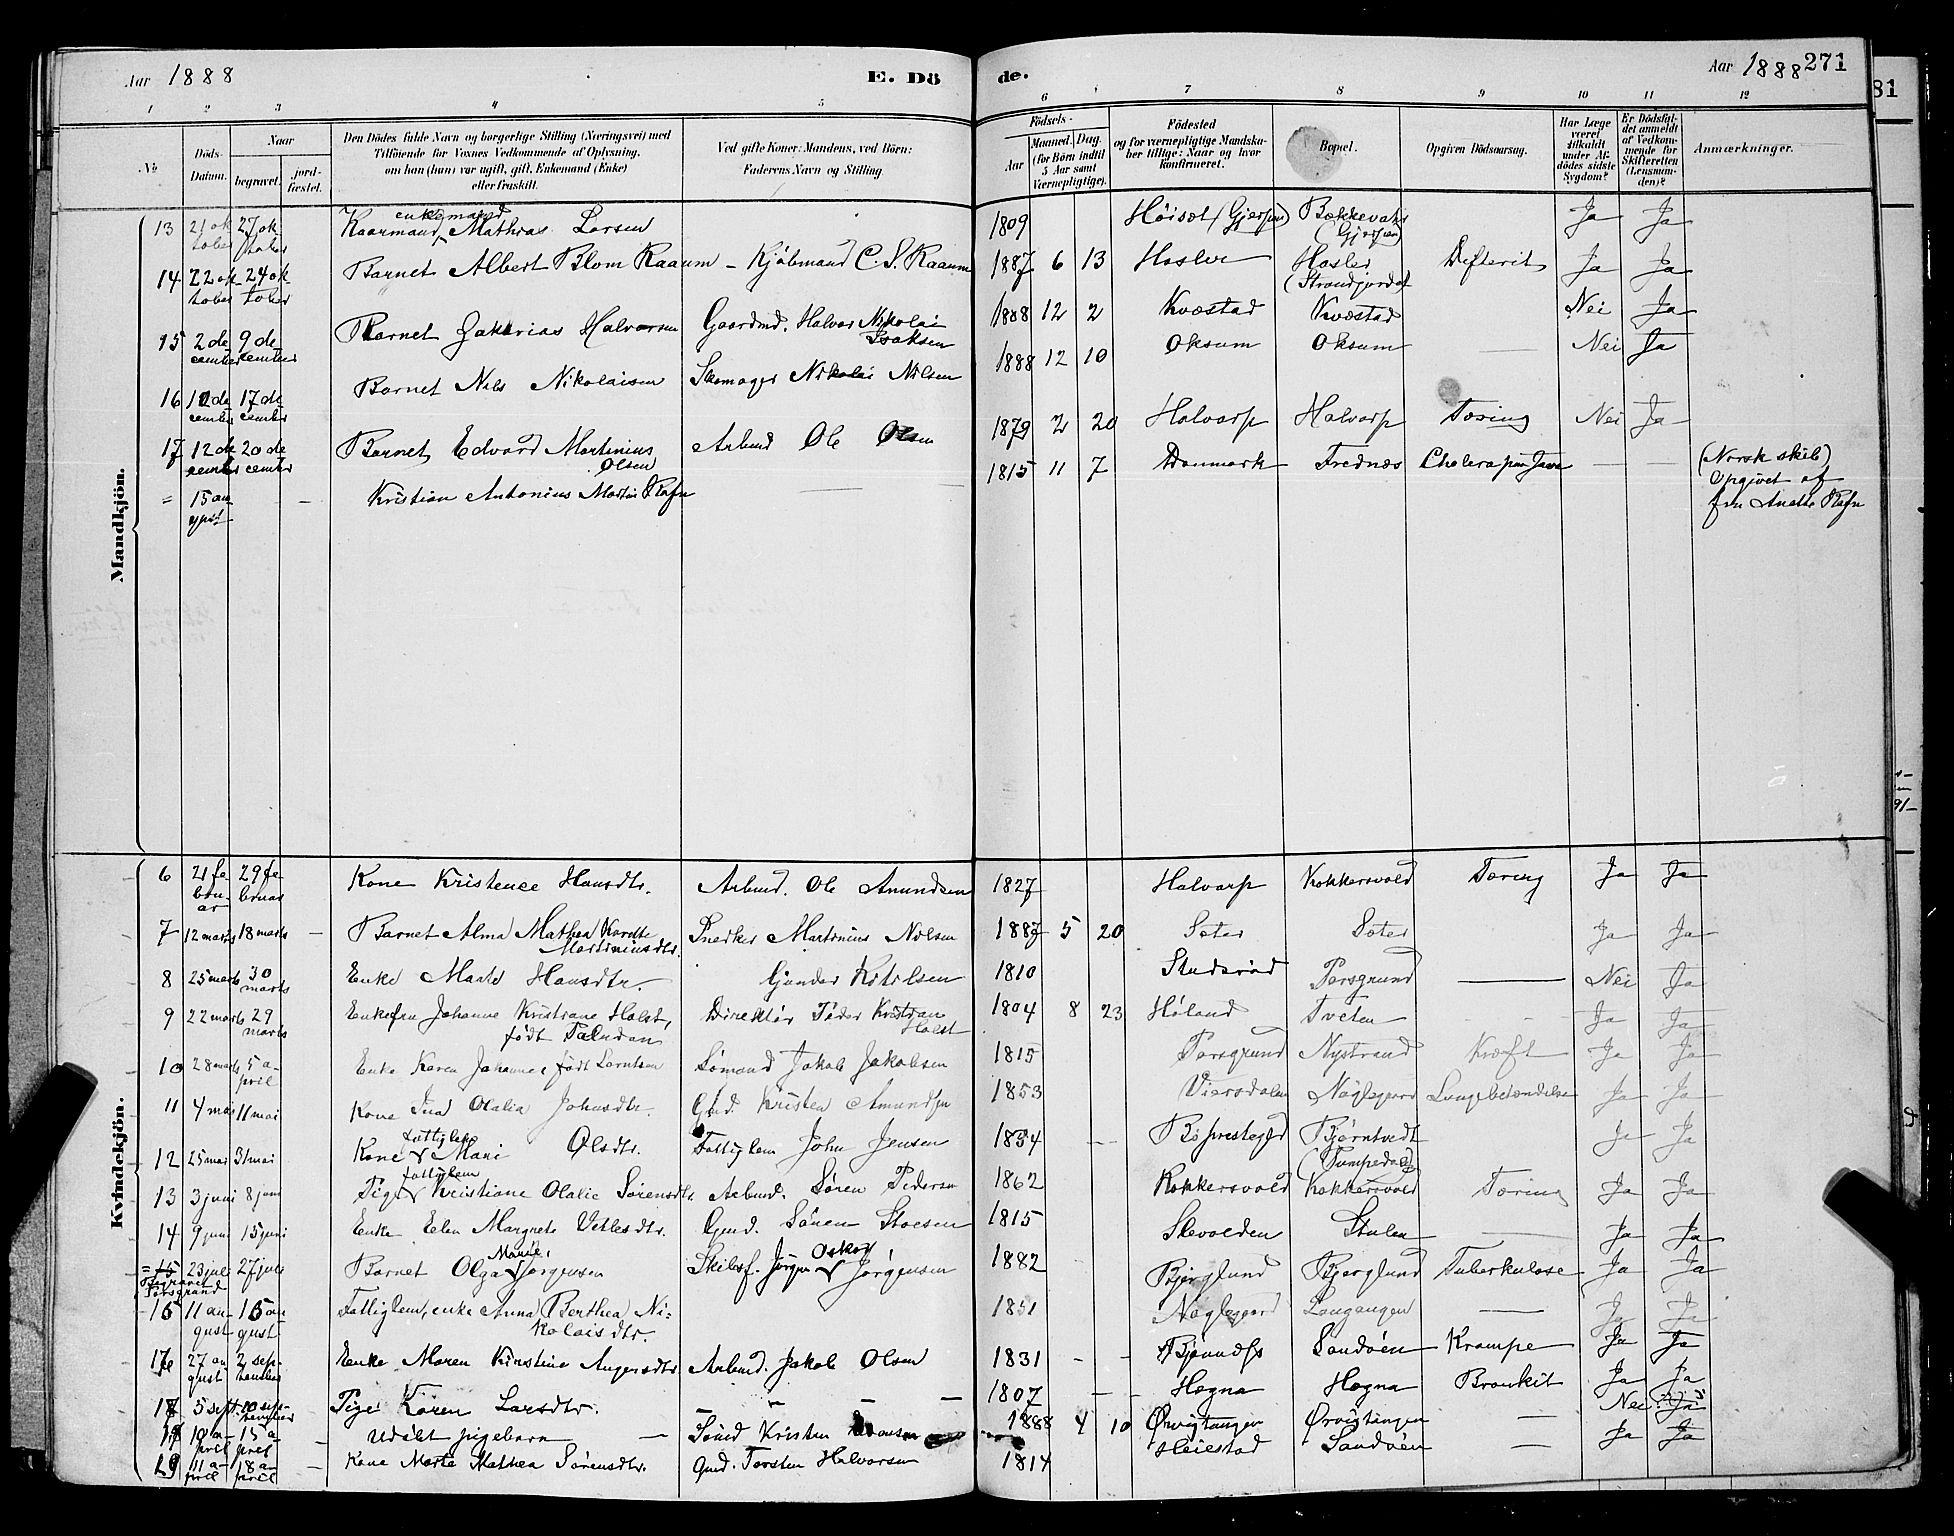 Aar 1888 E. Dö
de. Aar 1888 271
81
1 2 3 4 5 6 7 8 9 10 11 12
No
Döds-Datum.
Naar
begravet.
jord-fæstet.
Den Dödes fulde Navn og borgerlige Stilling (Næringsvei) med
Tilföiende for Voxnes Vedkommende af Oplysning,
om han (hun) var ugift, gift, Enkemand (Enke)
eller fraskilt.
Ved gifte Koner: Mandens, ved Börn:
Faderens Navn og Stilling.
Födsels-
Aar
Maaned.
Dag.
(for Börn indtil
5 Aar samt
Værnepligtige).
Födested
og for værnepligtige Mandska-
ber tillige: Naar og hvor
konfirmeret.
Bopæl.
Opgiven Dödsaarsag.
Har Læge
været
tilkaldt
under Af-
dödes sidste
Sygdom?
Er Dödsfal-
det anmeldt
af Vedkom-
mende for
Skifteretten
(Lensman-
den)?
Anmærkninger.
Mandkjön.
13 21 oktober 27 oktober Kaarmand enkemand Mathias Larsen 1809 Høisæt (Gjerpen) Bækkevatn (Gjerpen) Ja Ja
14 22 oktober 24 oktober Barnet Albert Blom Raaum - Kjøbmand C. S. Raaum 1887 6 13 Hasler Hasler (Strandjordet) Defterit Ja Ja
15 2 december 9 december Barnet Zakarias Halvorsen Gaardmd. Halvor Nikolai Isaksen 1888 12 2 Kvæstad Kvæstad Nei Ja
16 10 december 17 december Barnet Nils Nikolaisen Skomager Nikolai Nilsen 1888 12 10 Oksum Oksum — Nei Ja
17 12 december 20 december Barnet Edvard Martinius Olsen Arbmd Ole Olsen 1879 2 20 Halvarp Halvarp Tæring Nei Ja
= 15 august — Kristian Antonius Martin Rafn — 1815 11 7 Danmark Frednæs Cholera paa Java — — (Norsk skib) Opgivet af fru Anette Rafn
Kvindekjön.
6 21 februar 29 februar Kone Kristence Hansdtr. Arbmd. Ole Amundsen 1827 Halvarp Kokkersvold Tæring Ja Ja
7 12 marts 18 marts — Barnet Alma Mathea Karete Martiniusdtr. Snedker Martinius Nilsen 1887 5 20 Sæter Sæter Ja Ja
8 25 marts 30 marts Enke Maate Hansdtr. Gunder Kittilsen 1810 Studerød Porsgrund — Nei Ja
9 22 marts 29 marts Enkefru Johanne Kristiane Holst, født Paludan Direktør Peder Kristian Holst 1804 8 23 Høland Tveten Ja Ja
10 28 marts 5 april Enke Karen Johanne, født Lorntsen Sømand Jakob Jakobsen 1815 Porsgrund Nystrand Kræft Ja Ja
11 4 mai 11 mai Kone Ina Olalia Johnsdtr. Gmd. Kristen Amundsen 1853 Viersdalen Naglegaard Lungebetændelse Ja Ja
12 25 mai 31 mai Kone fattiglem Mari Olsdtr. Fattiglem John Jensen 1834 — Bø prestegjld Bjørntvedt Ja Ja
13 3 juni 8 juni Pige fattiglem Kristiane Olalie Sørensdtr. Arbmd. Søren Pedersen 1862 Kokkersvold Kokkersvold Tæring Ja Ja
14 9 juni 15 juni Enke Elen Margrete Vetlesdtr. Gmd. Søren Stoesen 1815 Skevolden Stulen — Ja Ja
= 15 23 juli 27 juli Barnet Olga Marie Jørgensen Skibsf. Jørgen Oskar Jørgensen 1882 Bjerglund Bjerglund Tuberkulose Ja Ja
Begravet Porsgrund
15 11 august 15 august Fattiglem, enke Anna Berthea Nikolaisdtr. 1851 Naglegaard Langangen — Ja Ja
16 27 august 2 september Enke Maren Kirstine Angersdtr. Arbmd. Jakob Olsen 1831 - - Sandøen Krampe Ja Ja
17 5 sept. 10 september Pige Karen Larsdtr. — 1807 — Hægna Hægna Bronkit Ja Ja
18 10 april 15 april — Udøbt pigebarn — Tømd Kristen 1888 4 10 Ørvigtangen Ørvigtangen — Nei Ja
19 11 april 18 april — Kone Marte Mathea Sørensdtr. Gmd. Torsten Halvorsen 1814 Heiestad Sandøen — Ja Ja